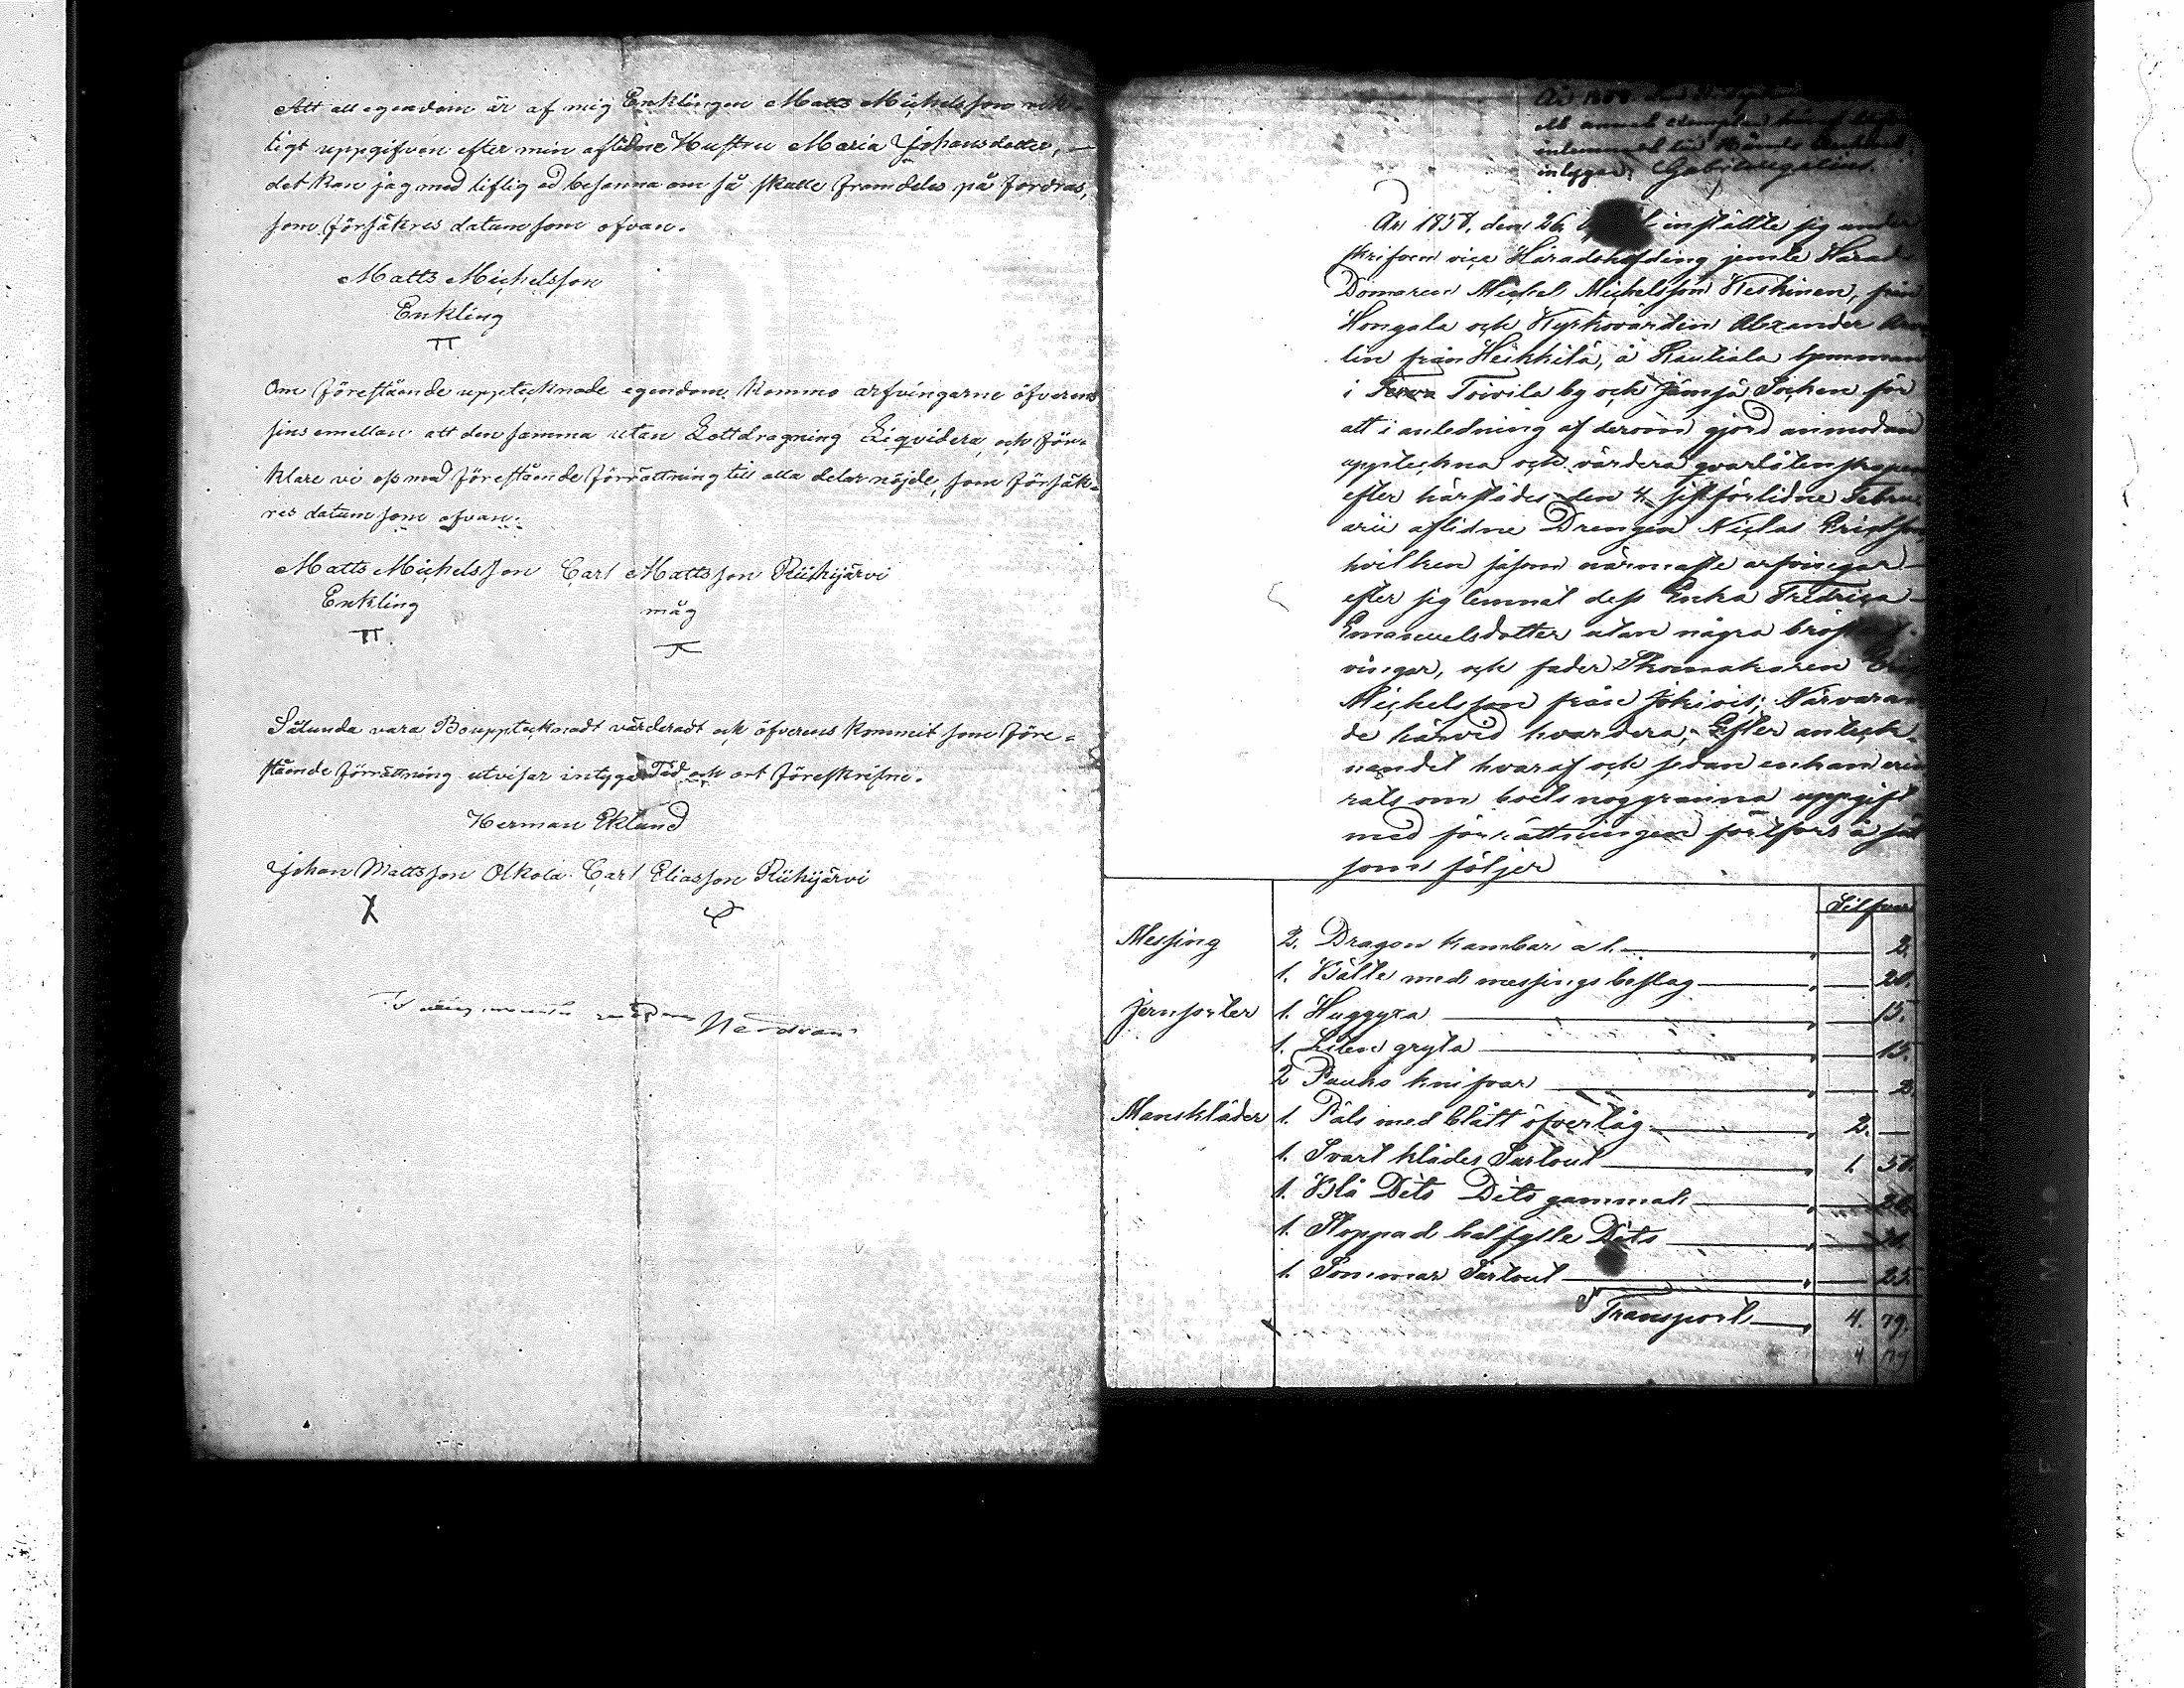 Att all egendom är af mig Enklingen Matts Michelsson rik-
tigt uppgifven efter min aflidne Hustru Maria Johansdotter, —
det kan jag med liflig ed besanna om så skulle framdeles på fordras,
som försäkres datum som ofvan.
Matts Michelsson
Enkling
Om förestående upptecknade egendom kommo arfvingarne öfverens
sins emellan att densamma utan Lottdragning Liqvidera, och för-
klare vi oss med förestående förrättning till alla delar nöjde, som försäk-
res datum som ofvan.
Matts Michelsson Carl Mattsson Riihijärvi
Enkling måg
Sålunda vara Boupptecknadt värderadt och öfverens kommit som före-
stående förrättning utvisar intygar Tid och ort föreskrifne.
Herman Eklund
Johan Mattsson Olkola Carl Eliasson Riihijärvi
År
ett annat exemplar häraf
inlemnadt
intygar,
År 1858, den 26 inställte sig under
skrifven vice Häradshöfding jemte Härads
Domaren Michel Michelsson Keskinen, från
Hongala och Kyrkovärden Alexander
lin från Heikkilä, å Rautiala hemman
i Toivila by och Jämsä Socken för
att i anledning af derom gjord anmodan
uppteckna och värdera qvarlåtenskapen
efter härstädes den 4 sistförlidne Febru
arii aflidne Drengen Niclas Ericsson
hvilken såsom närmaste arfvingar —
efter sig lemnat dess Enka Fredrica —
Emanuelsdotter utan några
vingar, och fader Skomakaren Eric
Michelsson från Jokivis; Närvaran
de härvid hvardera; Efter anteck-
nandet hvaraf och sedan enkan erin
rats om boets noggranna uppgift
med förrättningen fortfors å sät
som följer
Silfver
Messing 2. Dragon kambar a 1. — 2.
1. Bälte med messings beslag — 20.
Jernsorter 1. Huggyxa — 15.
1. Liten gryta — 15.
2 Pauko knifvar — 2
Manskläder 1. Päls med blått öfverlåg — 2. —
1. Svart klädes Surtout — 1. 50.
1. Blå Dito Dito gammal —
1. Stoppad halfylle Dito —
1. Sommar Surtout — 25.
Transport — 4. 79.
4 79